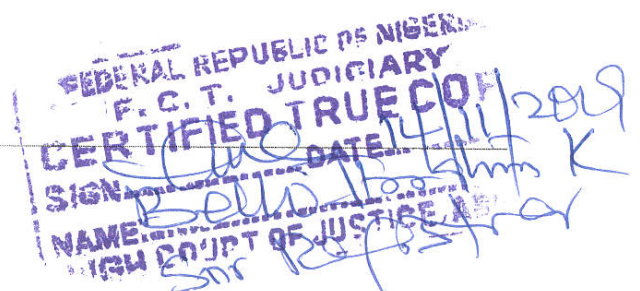 FEDERAL REPUBLIC OF NIGERIA
F. C. T. JUDICIARY
CERTIFIED TRUE COP
SIGN.......... DATE... 14/11/2019
NAME.......... Bello K
HIGH COURT OF JUSTICE A
Snr Registrar